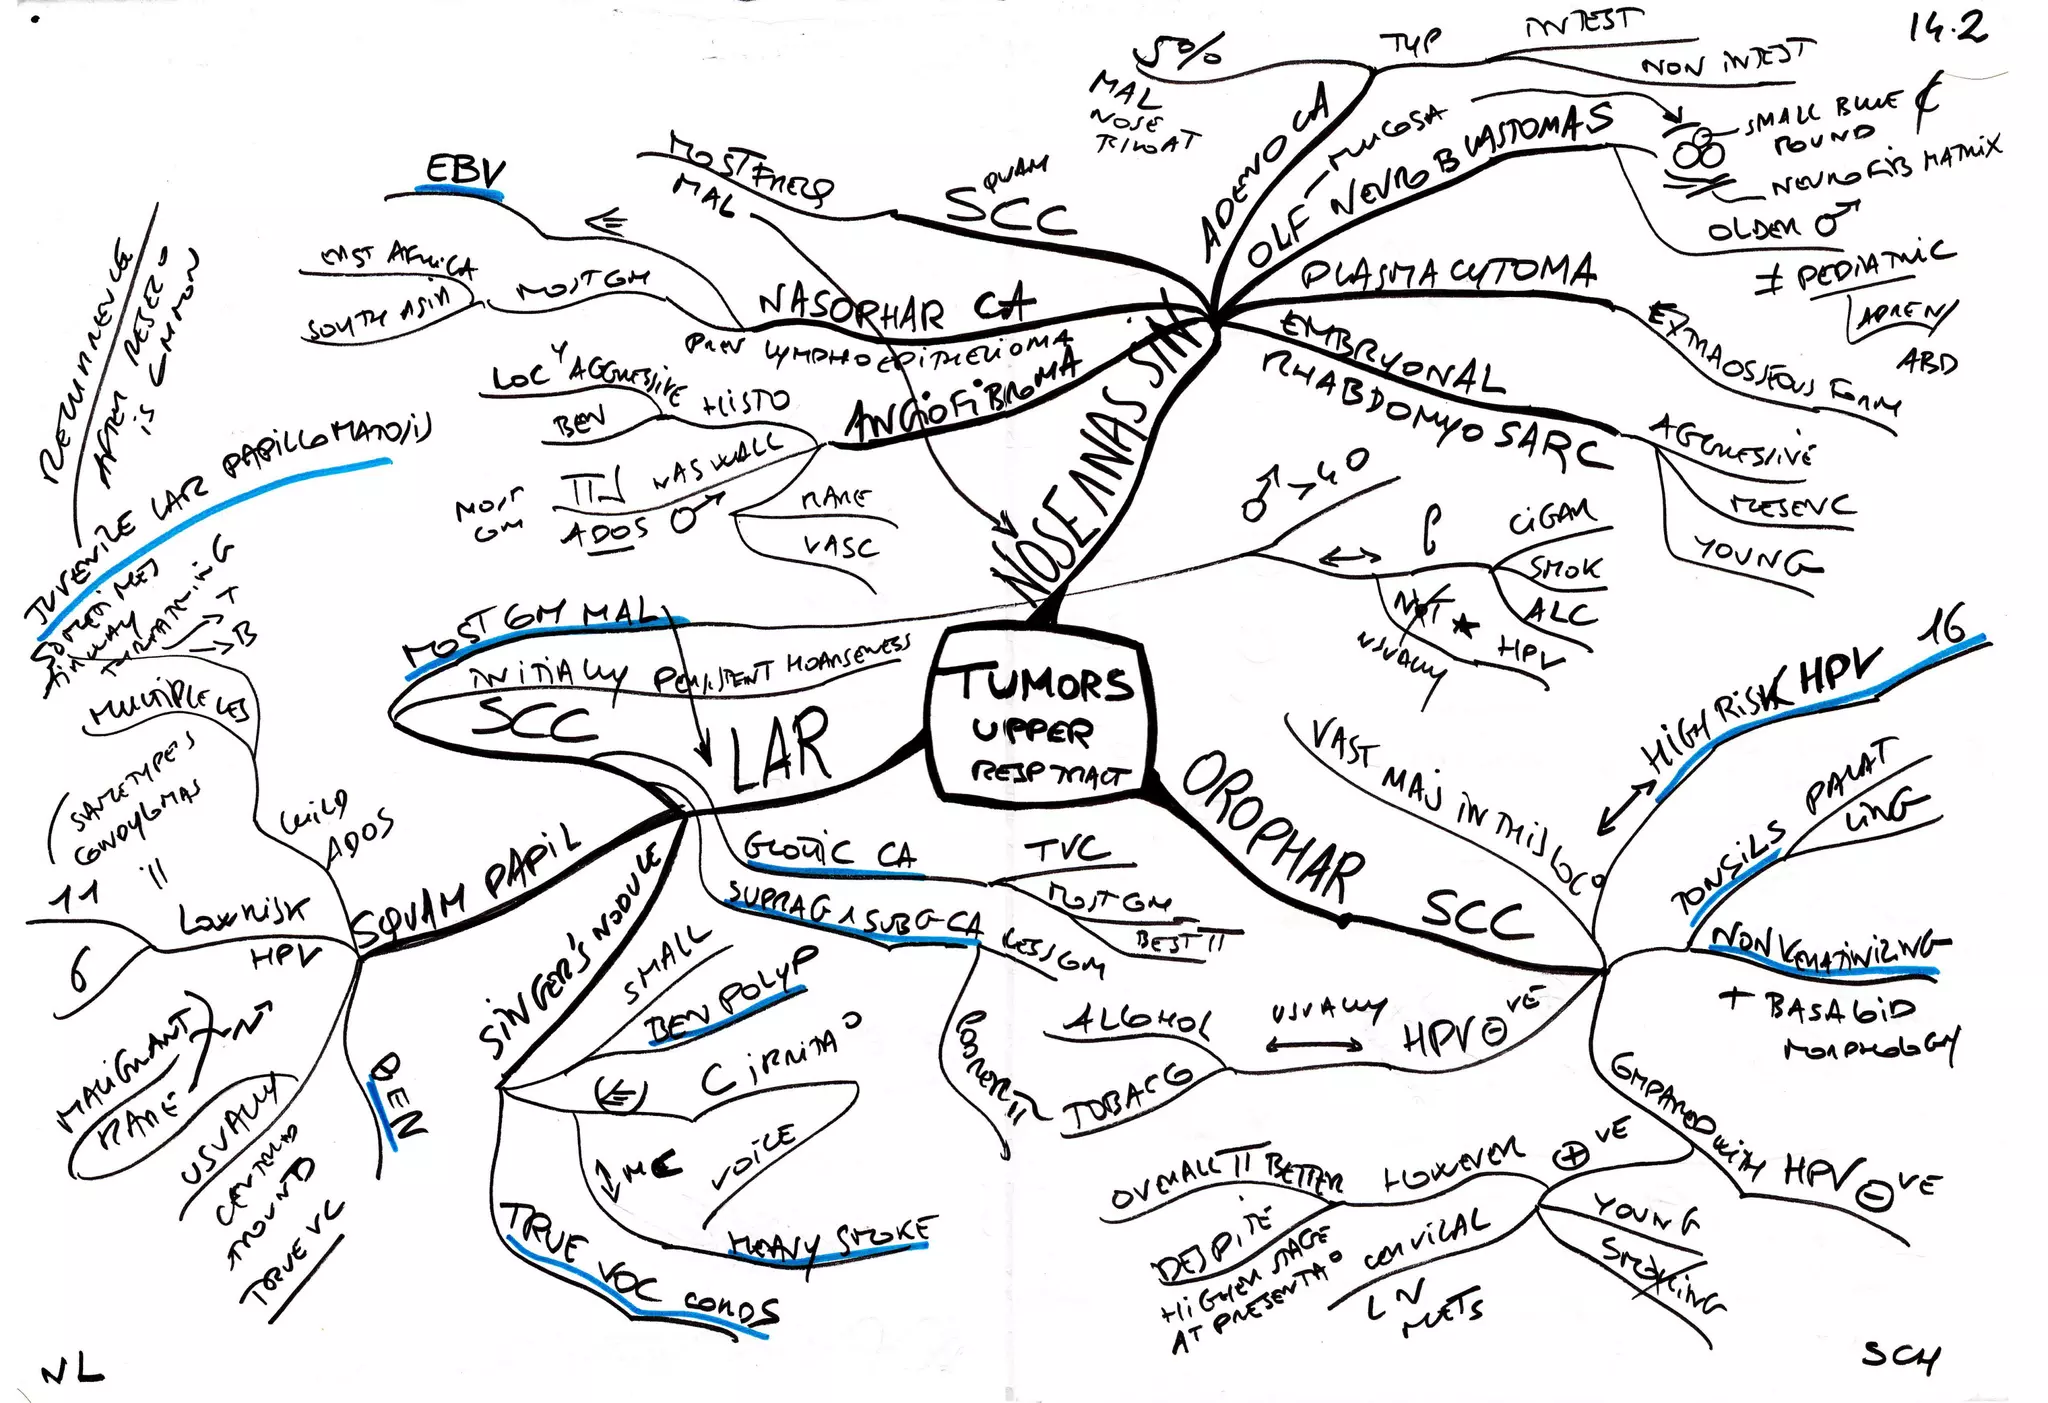 14.2
5%
MAL
NOSE
THROAT
TYP
INTEST
NON INTEST
ADENO CA
OLF NEUROBLASTOMAS
MUCOSA
SMALL BLUE
ROUND
NEUROFIB MATRIX
OLDER ♂
≠ PEDIATRIC
ADREN
ABD
PLASMACYTOMA
EXTRAOSSEOUS FORM
EMBRYONAL
RHABDOMYOSARC
AGGRESSIVE
RESEXC
YOUNG
SQUAM
SCC
MOST FREQ
MAL
NASOPHAR CA
PREV LYMPHOEPITHELIOMA
EBV
MOST COM
EAST AFRICA
SOUTH ASIA
ANGIOFIBROMA
HISTO
LOC Y AGGRESSIVE
BEN
NAS WALL
MOST
COM
ADOS ♂
RARE
VASC
NOSE A NAS SIN
TUMORS
UPPER
RESP TRACT
LAR
SCC
MOST COM MAL
♂ > 40
CIGAR
SMOK
ALC
NOT
USUALLY
HPV
INITIALLY PERSISTENT HOARSENESS
GLOTTIC CA
TVC
MOST COM
BEST
SUPRAG A SUBG CA
LESS COM
POORER
SINGER'S NODULE
SMALL
BEN POLYP
C IRRITAº
VOICE
HEAVY SMOKE
TRUE VOC CORDS
SQUAM PAPIL
CHILD
ADOS
MULTIPLE LES
JUVENILE LAR PAPILLOMATOSIS
SOMETIMES
AIRWAY
THREATENING
T
B
RECURRENCE
AFTER RESEC
IS COMMON
LOW RISK
HPV
11
6
SAME TYPES
CONDYLOMAS
BEN
USUALLY
CENTERED
AROUND
TRUE VC
MALIGNANT
RARE
OROPHAR
SCC
VAST MAJ IN THIS LOCº
HIGH RISK HPV 16
TONSILS
PALAT
LING
NONKERATINIZING
+ BASALOID
MORPHOLOGY
HPV ⊖ VE
USUALLY
ALCOHOL
TOBACCO
COMPARED WITH HPV ⊖ VE
⊕ VE
YOUNG
SMOKING
CERVICAL
LN
METS
HOWEVER
OVERALL BETTER
DESPITE
HIGHER STAGE
AT PRESENTAº
NL
SCH